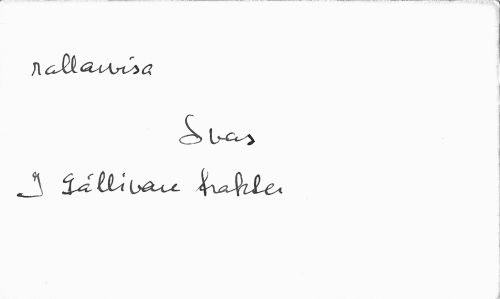 rallarvisa
Svas
I Gällivare trakter